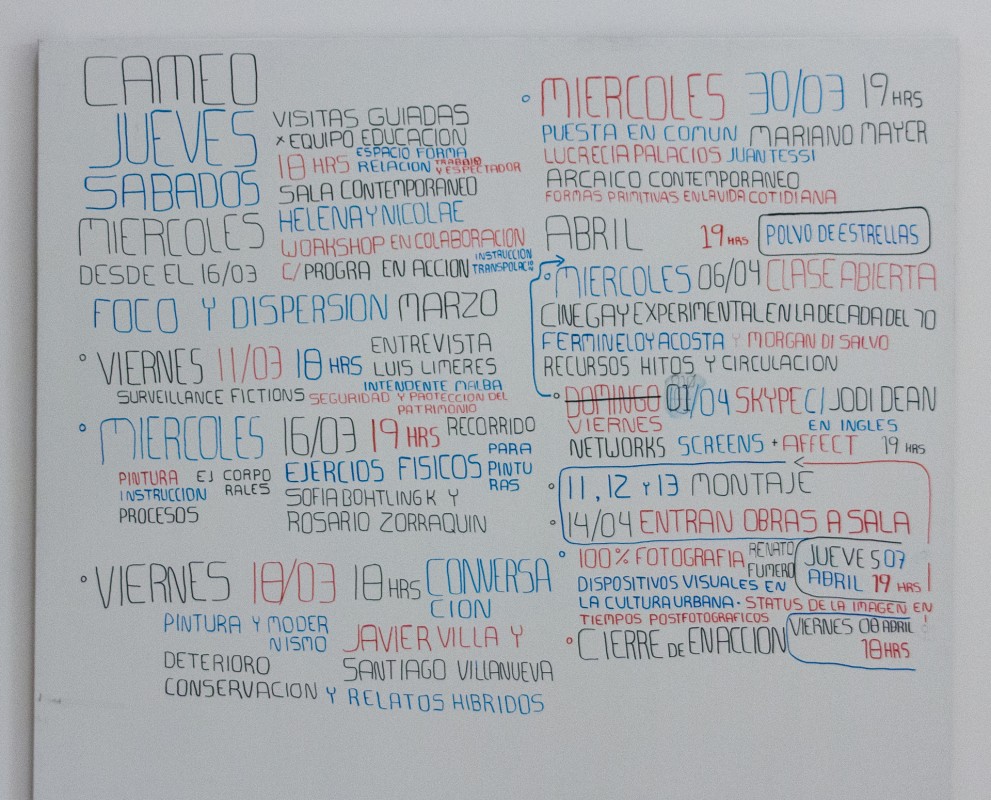 CAMEO
JUEVES
SABADOS
MIERCOLES
DESDE EL 16/03
VISITAS GUIADAS
x EQUIPO EDUCACION
18 HRS ESPACIO FORMA
RELACION TRABAJO
Y ESPECTADOR
SALA CONTEMPORANEO
HELENA Y NICOLAE
WORKSHOP EN COLABORACION
C/ PROGRA EN ACCION INSTRUCCION
TRANSPOLACIO
FOCO Y DISPERSION MARZO
VIERNES 11/03 18 HRS ENTREVISTA
LUIS LIMERES
INTENDENTE MALBA
SURVEILLANCE FICTIONS SEGURIDAD Y PROTECCION DEL
PATRIMONIO
MIERCOLES 16/03 19 HRS RECORRIDO
PINTURA EJ CORPO
RALES
INSTRUCCION
PROCESOS
EJERCIOS FISICOS PARA
PINTU
RAS
SOFIA BOHTLINGK Y
ROSARIO ZORRAQUIN
VIERNES 18/03 18 HRS CONVERSA
CION
PINTURA Y MODER
NISMO
JAVIER VILLA Y
DETERIORO
SANTIAGO VILLANUEVA
CONSERVACION Y RELATOS HIBRIDOS
MIERCOLES 30/03 19 HRS
PUESTA EN COMUN MARIANO MAYER
LUCRECIA PALACIOS JUAN TESSI
ARCAICO CONTEMPORANEO
FORMAS PRIMITIVAS EN LA VIDA COTIDIANA
ABRIL 19 HRS POLVO DE ESTRELLAS
MIERCOLES 06/04 CLASE ABIERTA
CINE GAY EXPERIMENTAL EN LA DECADA DEL 70
FERMIN ELOY ACOSTA Y MORGAN DI SALVO
RECURSOS HITOS Y CIRCULACION
DOMINGO 01/04 SKYPE C/ JODI DEAN
VIERNES EN INGLES
NETWORKS SCREENS + AFFECT 19 HRS
11, 12 Y 13 MONTAJE
14/04 ENTRAN OBRAS A SALA
100% FOTOGRAFIA RENATO
FUMERO
JUEVES 07
ABRIL 19 HRS !
DISPOSITIVOS VISUALES EN
LA CULTURA URBANA · STATUS DE LA IMAGEN EN
TIEMPOS POSTFOTOGRAFICOS
CIERRE DE ENACCION VIERNES 08 ABRIL
18 HRS